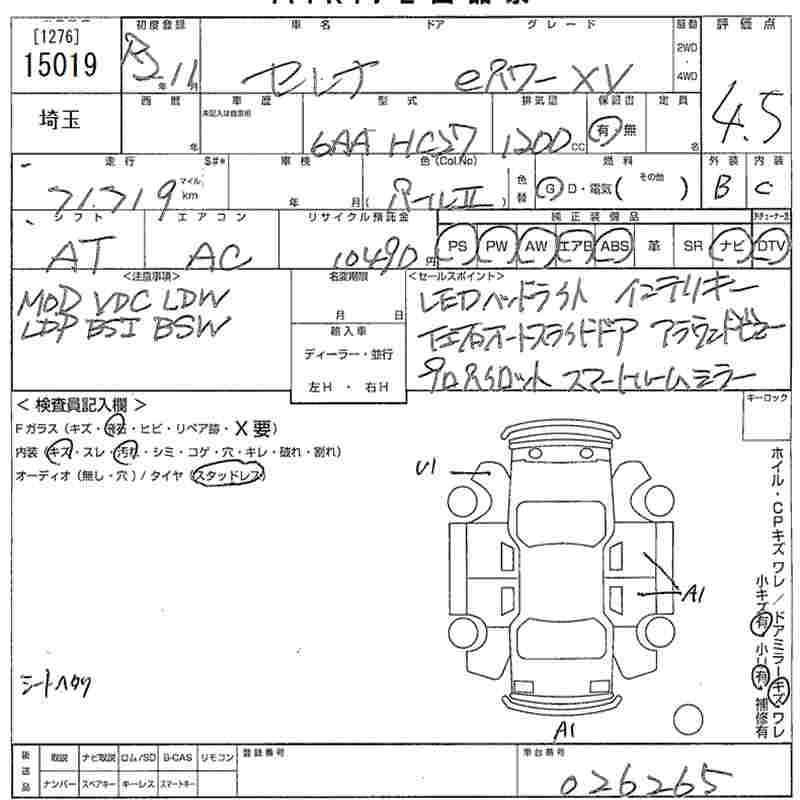 [1276]
15019
初度登録
R2年11月
車名
セレナ
ドア
グレード
eパワー XV
駆動
2WD
4WD
評価点
4.5
埼玉
西暦
年
車歴
未記入は自家用
型式
6AA HC27
排気量
1200cc
保証書
有・無
定員
名
走行
71,719
マイル
km
S#*
車検
年 月
色(Col,No)
パールⅡ
色替
燃料
G D・電気( その他 )
外装
B
内装
C
シフト
AT
エアコン
AC
リサイクル預託金
10490円
純正装備品
PS PW AW エアB ABS 革 SR ナビ DTV
<注意事項>
MOD VDC LDW
LDP BSI BSW
名変期限
月 日
輸入車
ディーラー・並行
左H ・ 右H
<セールスポイント>
LEDヘッドライト インテリキー
左右オートスライドドア アラウンドビュー
プロパイロット スマートルームミラー
< 検査員記入欄 >
Fガラス(キズ・飛石・ヒビ・リペア跡・X要)
内装(キズ・スレ・汚れ・シミ・コゲ・穴・キレ・破れ・割れ)
オーディオ(無し・穴)/タイヤ(スタッドレス)
キーロック
U1
A1
A1
ホイル・CPキズ ワレ/ドアミラーキズ・ワレ
小キズ有・小凹有・補修有
後送品
取説 ナビ取説 ロム/SD B-CAS リモコン
ナンバー スペアキー キーレス スマートキー
登録番号
車台番号
026265